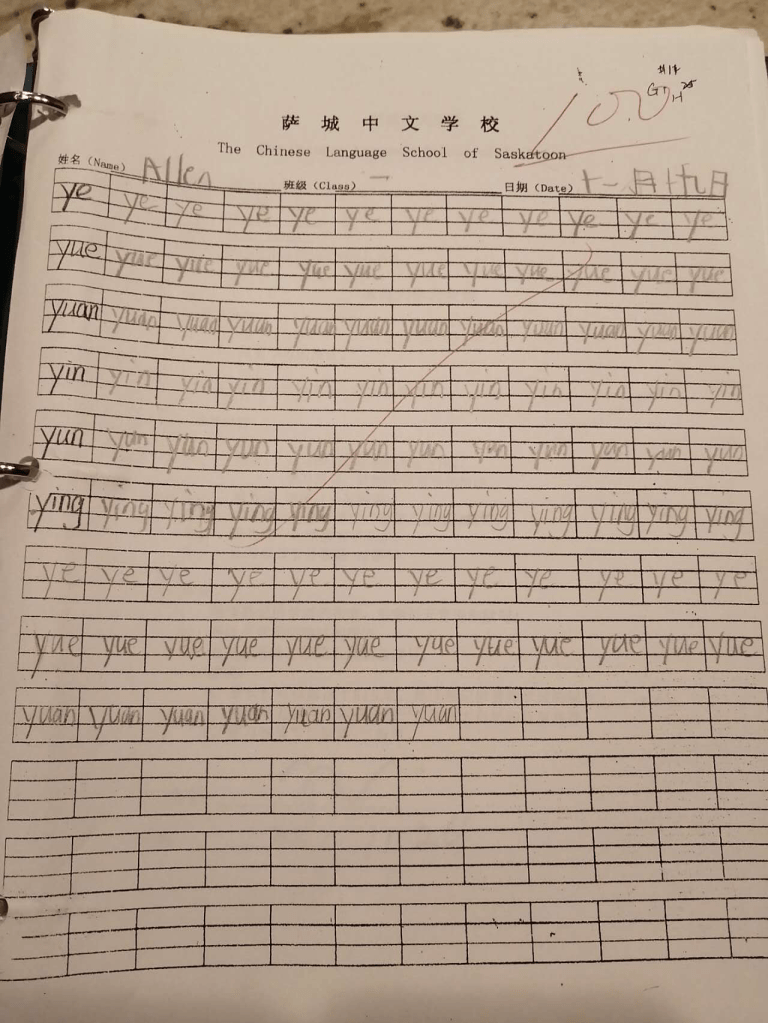 100
萨城中文学校
The Chinese Language School of Saskatoon
姓名(Name) Allen 班级(Class) 一 日期(Date) 十一月十九月
ye ye ye ye ye ye ye ye ye ye ye ye
yue yue yue yue yue yue yue yue yue yue yue yue
yuan yuan yuan yuan yuan yuan yuan yuan yuan yuan yuan yuan
yin yin yin yin yin yin yin yin yin yin yin yin
yun yun yun yun yun yun yun yun yun yun yun yun
ying ying ying ying ying ying ying ying ying ying ying ying
ye ye ye ye ye ye ye ye ye ye ye ye
yue yue yue yue yue yue yue yue yue yue yue yue
yuan yuan yuan yuan yuan yuan yuan